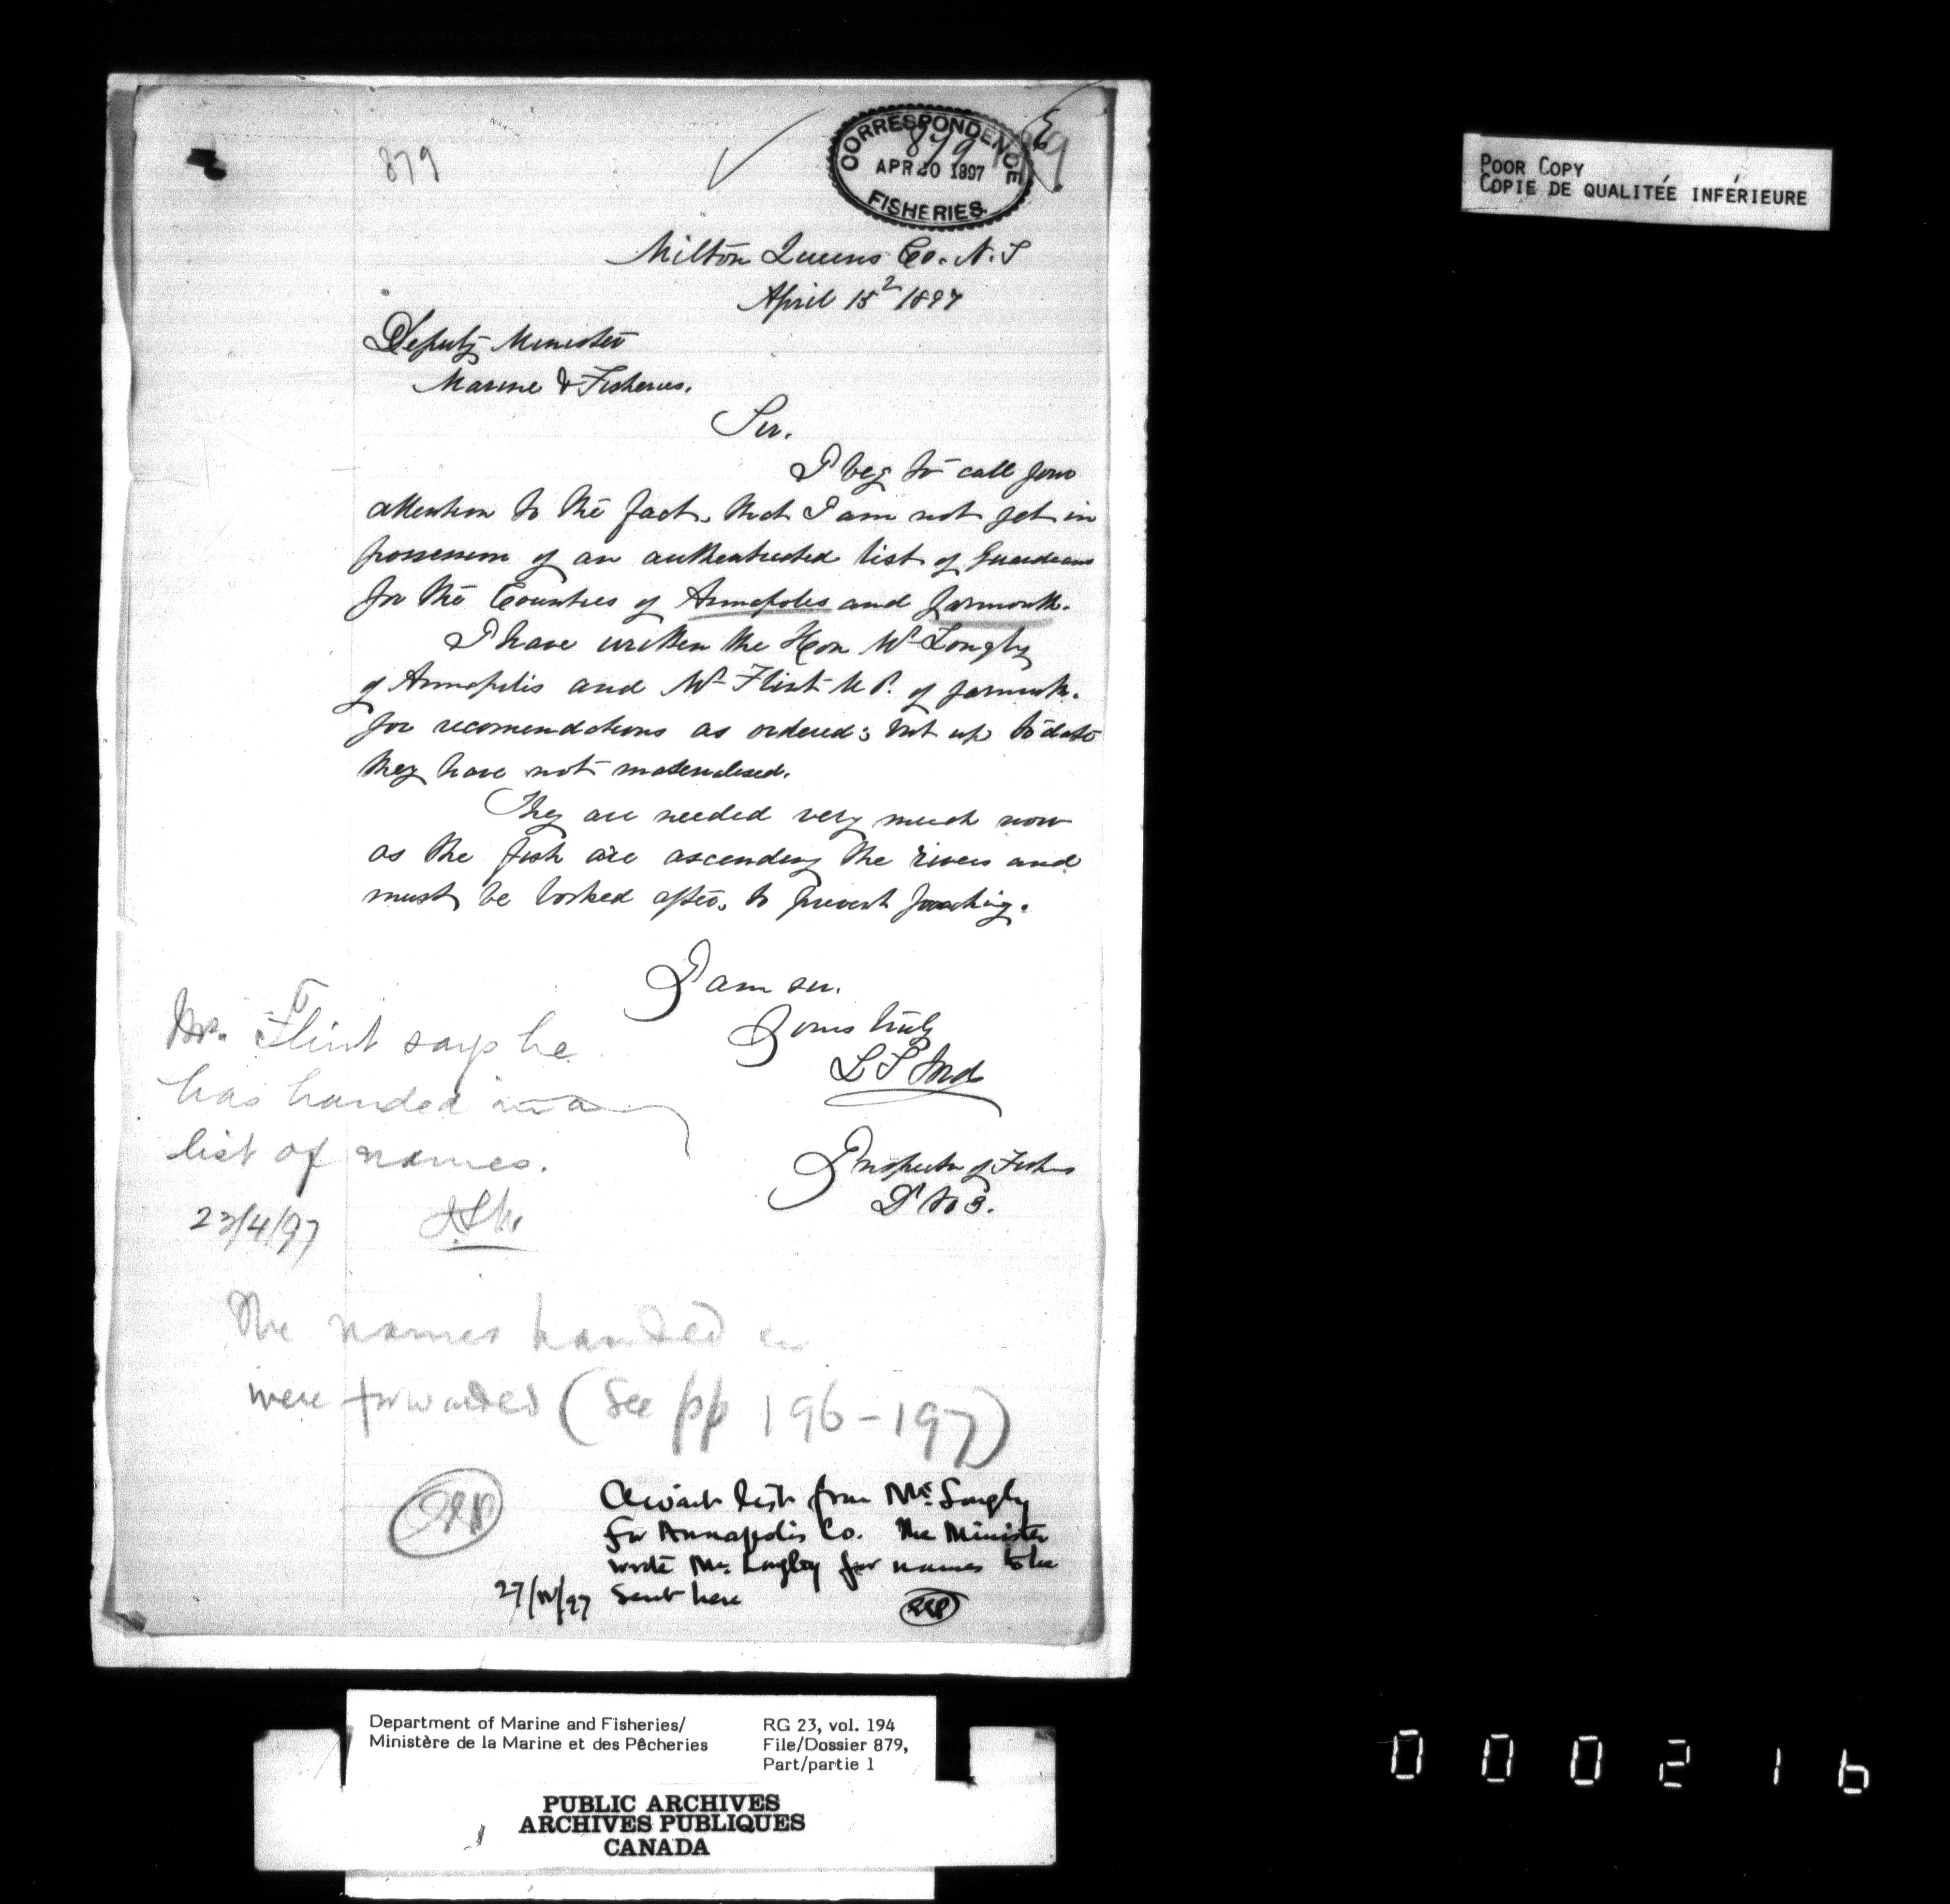 879
CORRESPONDENCE
879
APR 20 1897
FISHERIES.
POOR COPY
COPIE DE QUALITÉE INFÉRIEURE
Milton Queens Co. N.S
April 15 1897
Deputy Minister
Marine & Fisheries.
Sir.
I beg to call your
attention to the fact, that I am not yet in
possession of an authenticated list of Guardians
for the Counties of Annapolis and Yarmouth.
I have written the Hon Mr Longly
of Annapolis and Mr Flint M P. of Yarmouth.
for recomendations as ordered; but up to date
they have not materialised.
They are needed very much now
as the fish are ascending the rivers and
must be looked after, to prevent poaching.
I am sir.
Yours truly
L S Ford
Inspector of Fisheries
D. No 3.
Mr. Flint says he
has handed in a
list of names.
23/4/97
The names handed in
were forwarded (See pp 196-197)
Await list from Mr. Longly
for Annapolis Co. The Minister
wrote Mr. Longley for names to be
27/IV/97 sent here
Department of Marine and Fisheries/
Ministère de la Marine et des Pêcheries
RG 23, vol. 194
File/Dossier 879,
Part/partie 1
PUBLIC ARCHIVES
ARCHIVES PUBLIQUES
CANADA
000216